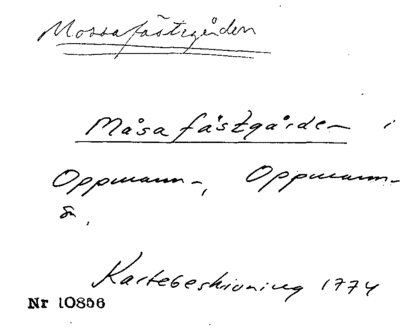 Mossafästegården
Måsa fästgården i
Oppmann-, Oppmann-
a.
Kartebeskivning 1774
Nr 10856